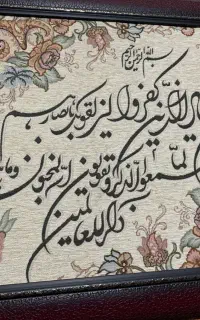 بسم الله الرحمن الرحيم
الذین کفروا لیزلقونک بابصارهم
لمّا سمعوا الذکر و یقولون انّه لمجنون وما
ذکر للعالمین